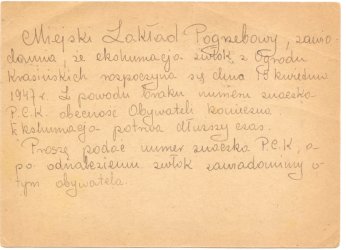 Miejski Zakład Pogrzebowy, zawia-
damia, że ekshumacja zwłok z Ogrodu
Krasińskich rozpoczyna się dnia 18 kwietnia
1947 r. Z powodu braku numeru znaczka
P.C.K. obecność Obywateli konieczna.
Ekshumacja potrwa dłuższy czas.
Proszę podać numer znaczka P.C.K, a
po odnalezieniu zwłok zawiadomimy o
tym obywatela.